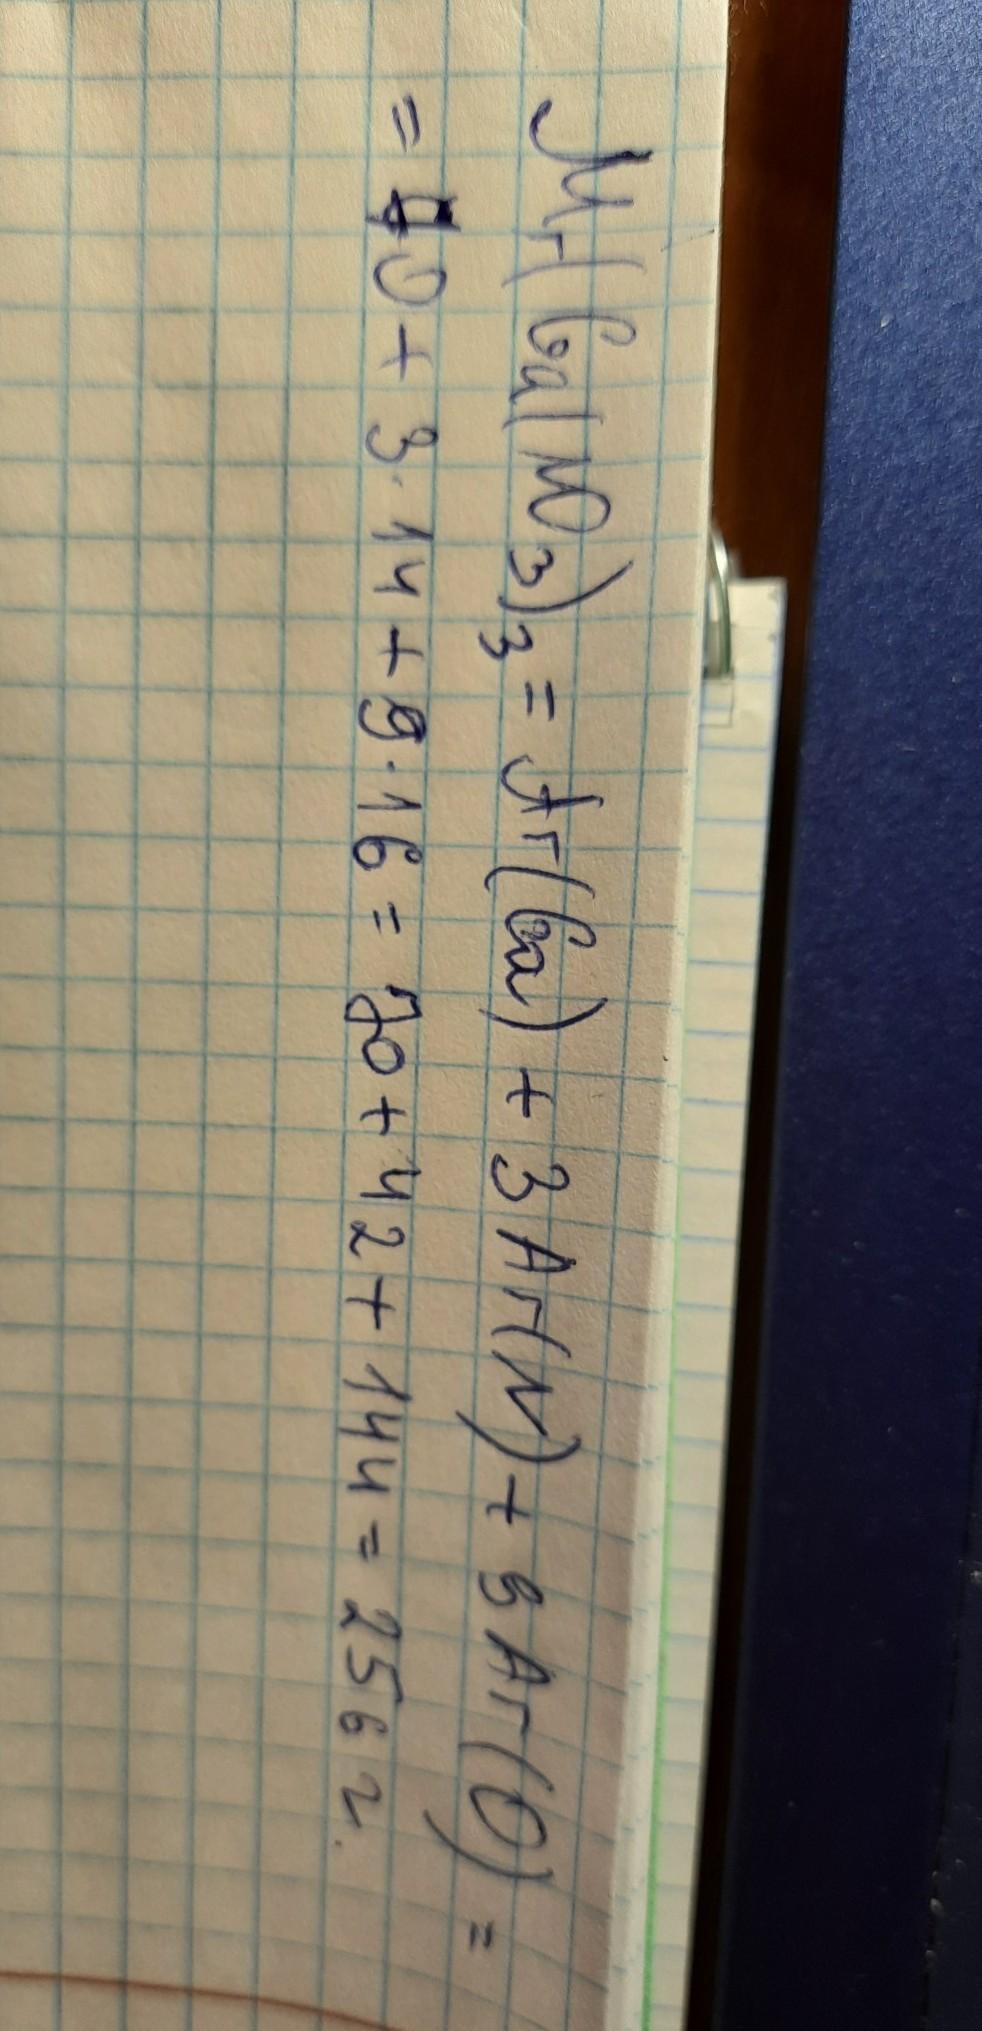 Mr(Ga(NO3)3 = Ar(Ga) + 3 Ar(N) + 9 Ar(O) =
= 70 + 3·14 + 9·16 = 70 + 42 + 144 = 256 г.